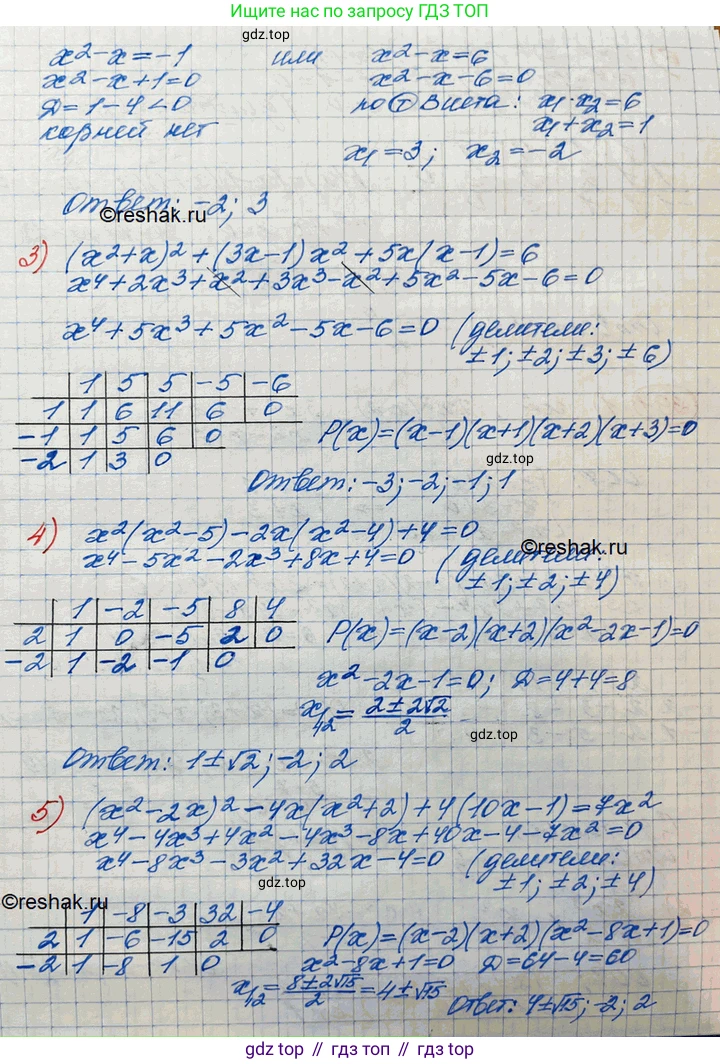 Ищите нас по запросу ГДЗ ТОП
gdz.top
x² - x = -1 или x² - x = 6
x² - x + 1 = 0 x² - x - 6 = 0
Д = 1 - 4 < 0 по Т Виета: x₁·x₂ = 6
корней нет x₁ + x₂ = 1
x₁ = 3; x₂ = -2
Ответ: -2; 3
©reshak.ru
3) (x² + x)² + (3x - 1)x² + 5x(x - 1) = 6
x⁴ + 2x³ + x² + 3x³ - x² + 5x² - 5x - 6 = 0
x⁴ + 5x³ + 5x² - 5x - 6 = 0 (делители:
gdz.top
±1; ±2; ±3; ±6)
1 5 5 -5 -6
1 1 6 11 6 0
-1 1 5 6 0
-2 1 3 0
P(x) = (x-1)(x+1)(x+2)(x+3) = 0
gdz.top
Ответ: -3; -2; -1; 1
4) x²(x² - 5) - 2x(x² - 4) + 4 = 0
©reshak.ru
x⁴ - 5x² - 2x³ + 8x + 4 = 0 (делители:
gdz.top
±1; ±2; ±4)
1 -2 -5 8 4
2 1 0 -5 2 0
-2 1 -2 -1 0
P(x) = (x-2)(x+2)(x² - 2x - 1) = 0
x² - 2x - 1 = 0; Д = 4 + 4 = 8
x₁,₂ = (2 ± 2√2)/2
gdz.top
Ответ: 1 ± √2; -2; 2
5) (x² - 2x)² - 4x(x² + 2) + 4(10x - 1) = 7x²
x⁴ - 4x³ + 4x² - 4x³ - 8x + 40x - 4 - 7x² = 0
x⁴ - 8x³ - 3x² + 32x - 4 = 0 (делители:
gdz.top
±1; ±2; ±4)
©reshak.ru
1 -8 -3 32 -4
2 1 -6 -15 2 0
-2 1 -8 1 0
P(x) = (x-2)(x+2)(x² - 8x + 1) = 0
gdz.top
x² - 8x + 1 = 0 Д = 64 - 4 = 60
x₁,₂ = (8 ± 2√15)/2 = 4 ± √15
Ответ: 4 ± √15; -2; 2
gdz top // гдз.top // gdz.top